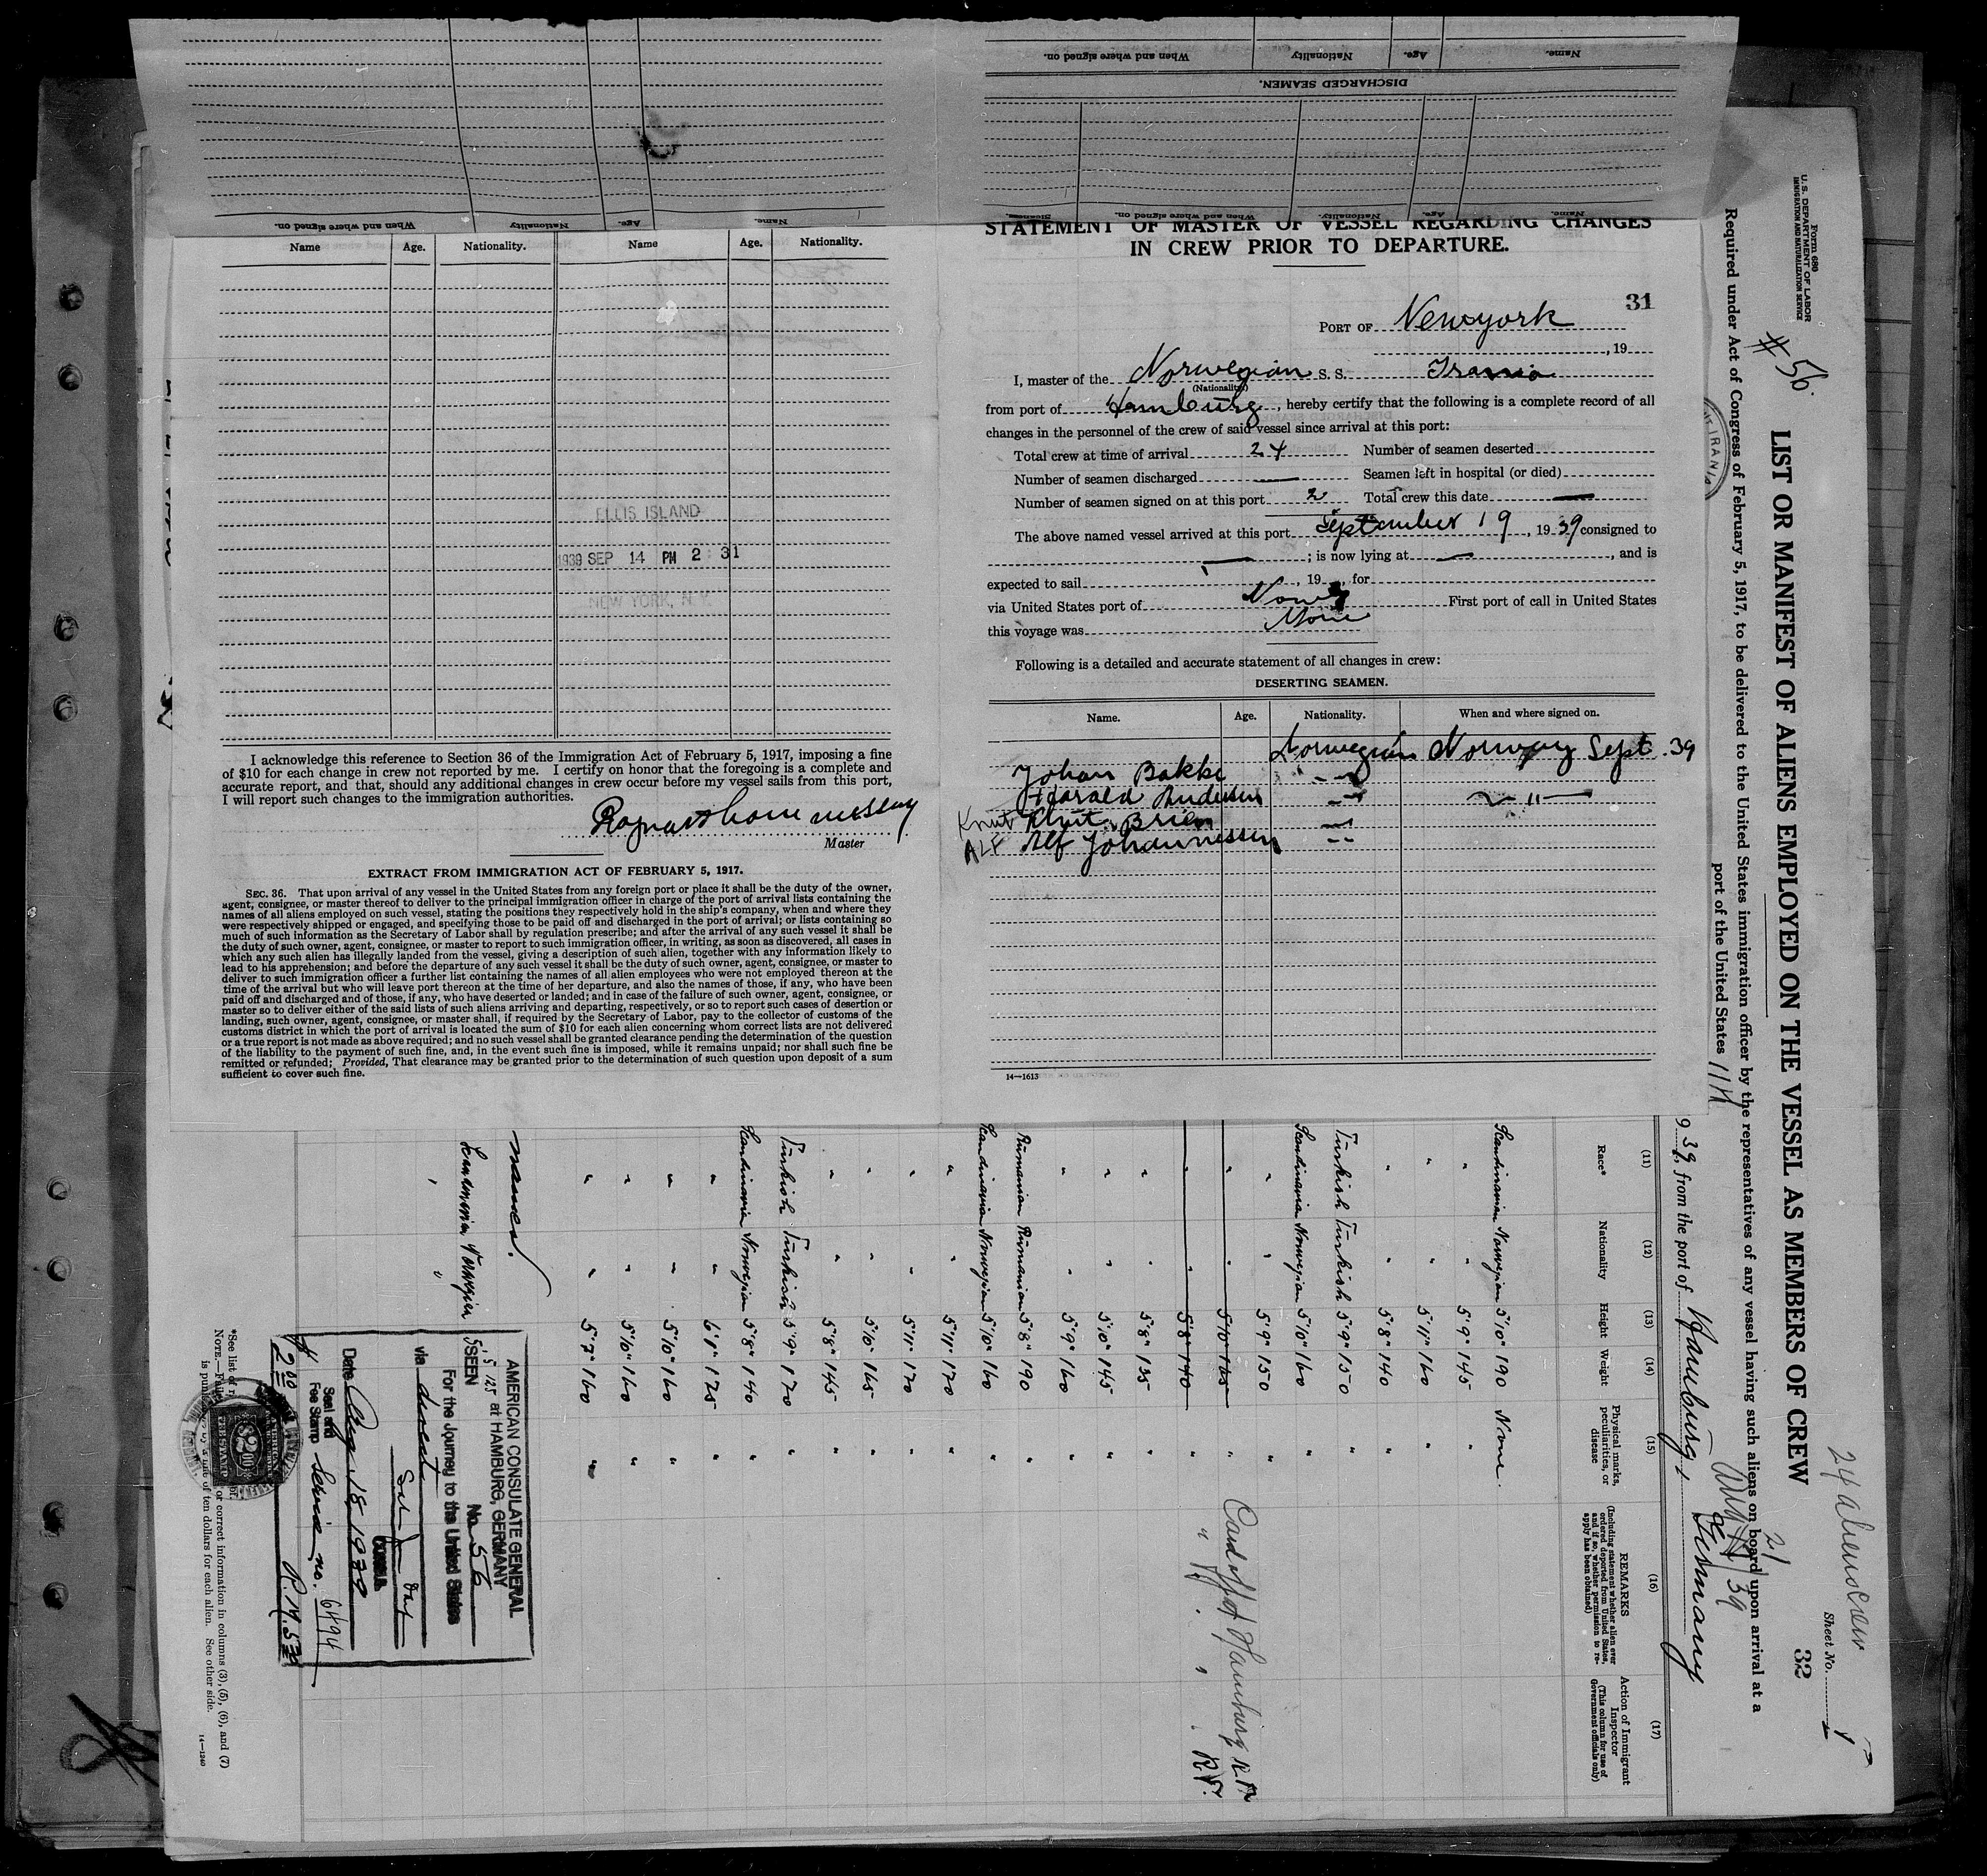 Name. Age. Nationality When and where signed on.
DISCHARGED SEAMEN.
Name. Age. Nationality When and where signed on.
Name. Age. Nationality. When and where signed on. Sickness.
Name Age. Nationality. Name Age. Nationality.
ELLIS ISLAND
1939 SEP 14 PM 2 31
NEW YORK, N.Y.
I acknowledge this reference to Section 36 of the Immigration Act of February 5, 1917, imposing a fine
of $10 for each change in crew not reported by me. I certify on honor that the foregoing is a complete and
accurate report, and that, should any additional changes in crew occur before my vessel sails from this port,
I will report such changes to the immigration authorities.
Master
EXTRACT FROM IMMIGRATION ACT OF FEBRUARY 5, 1917.
SEC. 36. That upon arrival of any vessel in the United States from any foreign port or place it shall be the duty of the owner,
agent, consignee, or master thereof to deliver to the principal immigration officer in charge of the port of arrival lists containing the
names of all aliens employed on such vessel, stating the positions they respectively hold in the ship's company, when and where they
were respectively shipped or engaged, and specifying those to be paid off and discharged in the port of arrival; or lists containing so
much of such information as the Secretary of Labor shall by regulation prescribe; and after the arrival of any such vessel it shall be
the duty of such owner, agent, consignee, or master to report to such immigration officer, in writing, as soon as discovered, all cases in
which any such alien has illegally landed from the vessel, giving a description of such alien, together with any information likely to
lead to his apprehension; and before the departure of any such vessel it shall be the duty of such owner, agent, consignee, or master to
deliver to such immigration officer a further list containing the names of all alien employees who were not employed thereon at the
time of the arrival but who will leave port thereon at the time of her departure, and also the names of those, if any, who have been
paid off and discharged and of those, if any, who have deserted or landed; and in case of the failure of such owner, agent, consignee, or
master so to deliver either of the said lists of such aliens arriving and departing, respectively, or so to report such cases of desertion or
landing, such owner, agent, consignee, or master shall, if required by the Secretary of Labor, pay to the collector of customs of the
customs district in which the port of arrival is located the sum of $10 for each alien concerning whom correct lists are not delivered
or a true report is not made as above required; and no such vessel shall be granted clearance pending the determination of the question
of the liability to the payment of such fine, and, in the event such fine is imposed, while it remains unpaid; nor shall such fine be
remitted or refunded; Provided, That clearance may be granted prior to the determination of such question upon deposit of a sum
sufficient to cover such fine.
STATEMENT OF MASTER OF VESSEL REGARDING CHANGES
IN CREW PRIOR TO DEPARTURE.
31
PORT OF Newyork
, 19
I, master of the Norwegian S. S. Irania
(Nationality)
from port of Hamburg, hereby certify that the following is a complete record of all
changes in the personnel of the crew of said vessel since arrival at this port:
Total crew at time of arrival 24 Number of seamen deserted
Number of seamen discharged — Seamen left in hospital (or died)
Number of seamen signed on at this port 2 Total crew this date —
The above named vessel arrived at this port September 19, 1939 consigned to
— ; is now lying at — , and is
expected to sail , 19 , for
via United States port of None First port of call in United States
this voyage was None
Following is a detailed and accurate statement of all changes in crew:
DESERTING SEAMEN.
Name. Age. Nationality. When and where signed on.
Norwegian Norway Sept. 39
Johan Bakke
Harald Andersen
Knut Knut Brien
ALF Alf Johannessen
14—1613
Form 680
U. S. DEPARTMENT OF LABOR
IMMIGRATION AND NATURALIZATION SERVICE
# 56.
24 aliens crew
Sheet No. 1
32
LIST OR MANIFEST OF ALIENS EMPLOYED ON THE VESSEL AS MEMBERS OF CREW
Required under Act of Congress of February 5, 1917, to be delivered to the United States immigration officer by the representatives of any vessel having such aliens on board upon arrival at a
port of the United States
IRANIA
939, from the port of Hamburg, Germany
(11) (12) (13) (14) (15) (16) (17)
Race* Nationality Height Weight Physical marks, peculiarities, or disease
REMARKS
(Including statement whether alien ever
ordered deported from United States,
and if so, whether permission to re-
apply has been obtained)
Action of Immigrant
Inspector
(This column for use of
Government officials only)
Scandinavian Norwegian 5'10" 190 None.
" " 5'9" 145 "
" " 5'11" 160 "
" " 5'8" 140 "
Turkish Turkish 5'9" 150 "
Scandinavia Norwegian 5'10" 160 "
" " 5'9" 150 "
" " 5'10" 165 " Cancd off at Hamburg
" " 5'8" 140 " " " " "
" " 5'8" 135 "
" " 5'10" 145 "
" " 5'9" 160 "
Rumanian Rumanian 5'8" 190 "
Scandinavia Norwegian 5'10" 160 "
" " 5'11" 170 "
" " 5'11" 170 "
" " 5'10" 165 "
" " 5'8" 145 "
Turkish Turkish 5'9" 170 "
Scandinavia Norwegian 5'8" 140 "
" " 6'1" 175 "
" " 5'10" 160 "
" " 5'10" 160 "
" " 5'7" 160 "
names.
AMERICAN CONSULATE GENERAL
at HAMBURG, GERMANY
SEEN No. 56
For the Journey to the United States
via direct
CONSUL
Date Aug 18 1939
Seal and
Fee Stamp Service no. 6494
$2.00
R.M. 5
*See list of
NOTE.—
or correct information in columns (3), (5), (6), and (7)
is of ten dollars for each alien. See other side.
14—1240